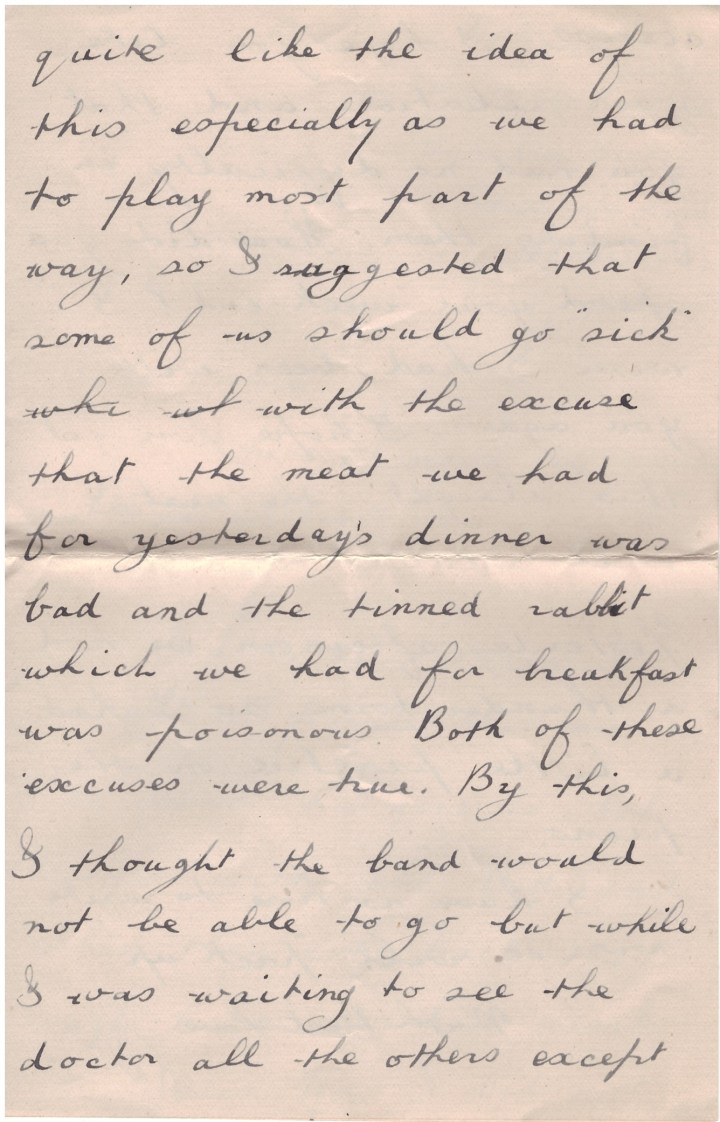 quite like the idea of
this especially as we had
to play most part of the
way, so I suggested that
some of us should go "sick"
with the excuse
that the meat we had
for yesterday's dinner was
bad and the tinned rabbit
which we had for breakfast
was poisonous. Both of these
excuses were true. By this,
I thought the band would
not be able to go but while
I was waiting to see the
doctor all the others except